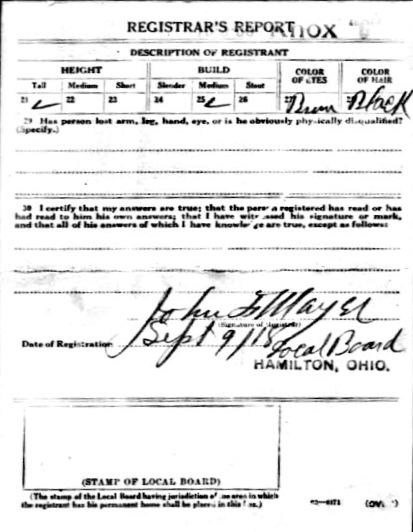 REGISTRAR'S REPORT
Knox
DESCRIPTION OF REGISTRANT
HEIGHT BUILD COLOR OF EYES COLOR OF HAIR
Tall Medium Short Slender Medium Stout
21 22 23 24 25 26 27 Black
29 Has person lost arm, leg, hand, eye, or is he obviously physically disqualified?
(Specify.)
30 I certify that my answers are true; that the person registered has read or has
had read to him his own answers; that I have witnessed his signature or mark,
and that all of his answers of which I have knowledge are true, except as follows:
John F Mayer
(Signature of Registrar)
Date of Registration Sept 9/18 Local Board
HAMILTON, OHIO.
(STAMP OF LOCAL BOARD)
(The stamp of the Local Board having jurisdiction of the area in which
the registrant has his permanent home shall be placed in this box.)
03—6171 (OVER)